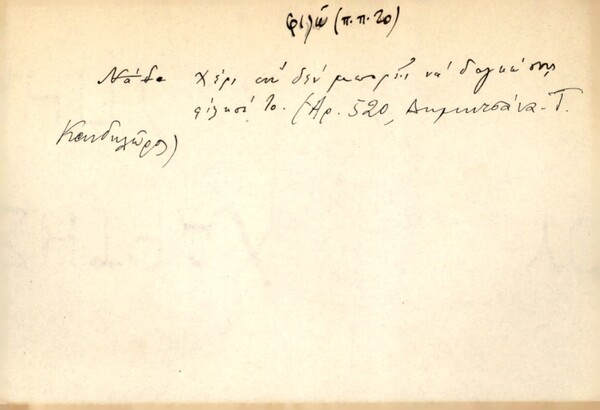 φιλῶ (π.π. 20)
Νά δα Χέρι ποὺ δὲν μπορεῖς νὰ δαγκάσῃς
φίλησέ το. (Ἀρ. 520, Δημητσάνα. Τ.
Κανδηλῶρος)